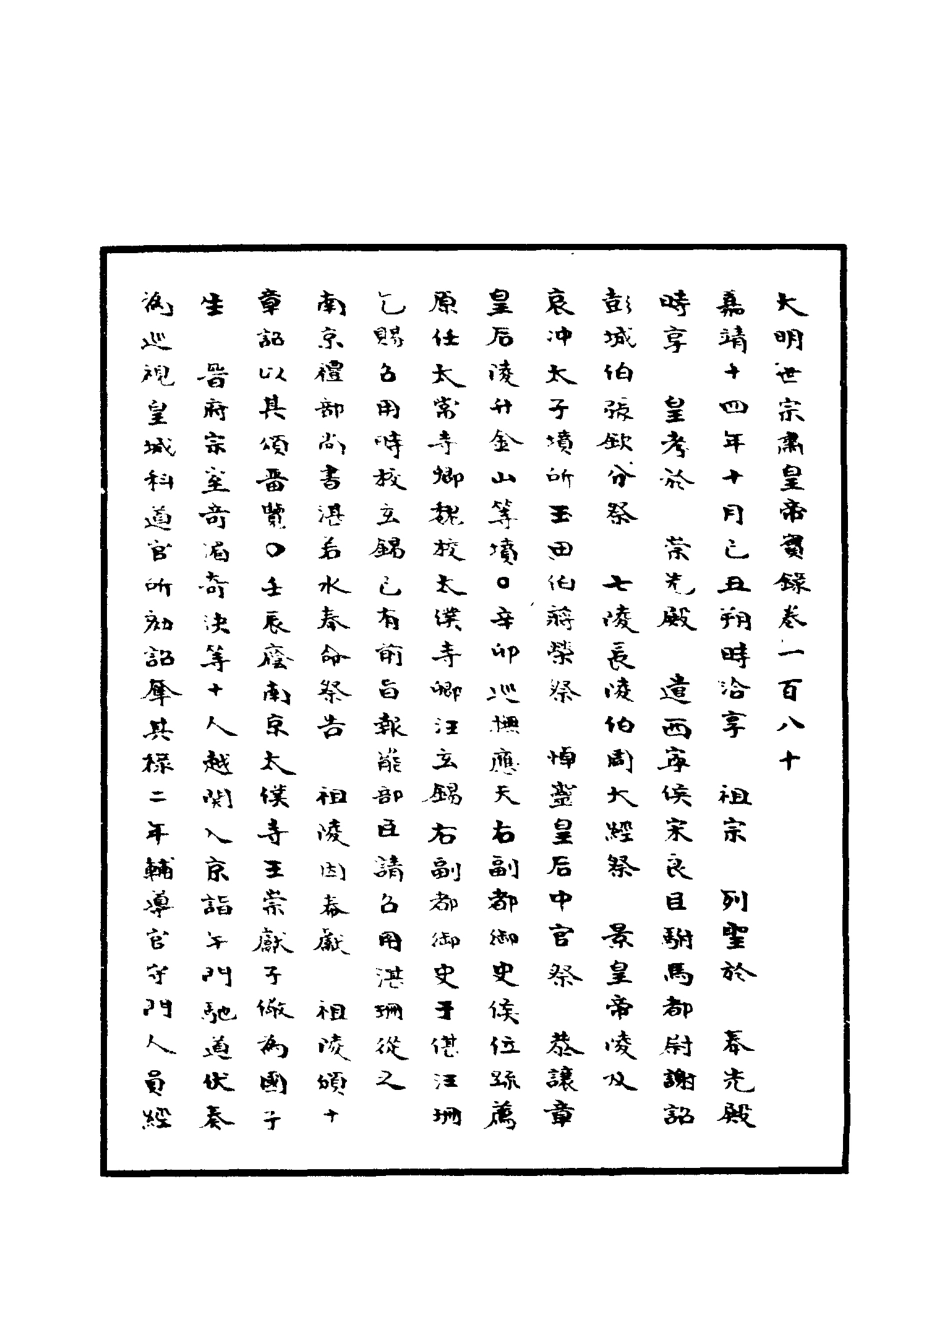 大明世宗肅皇帝實錄卷一百八十
嘉靖十四年十月己丑朔時洽享　祖宗　列聖於　奉先殿
時享　皇考於　崇先殿　遣西寧侯宋良臣駙馬都尉謝詔
彭城伯張欽分祭　七陵長陵伯周大經祭　景皇帝陵及
哀冲太子墳所玉田伯蔣榮祭　悼靈皇后中官祭　恭讓章
皇后陵并金山等墳○辛卯巡撫應天右副都御史侯位疏薦
原任太常寺卿魏校太僕寺卿汪玄錫右副都御史于偡汪珊
乞賜召用時校玄錫已有前旨報罷部臣請召用湛珊從之
南京禮部尚書湛若水奉命祭告　祖陵因奏獻　祖陵頌十
章詔以其頌晋覽○壬辰廕南京太僕寺王崇獻子儆為國子
生　晋府宗室奇湄奇決等十人越関入京詣午門馳道伏奏
為巡視皇城科道官所劾詔奪其祿二年輔導官守門人員經